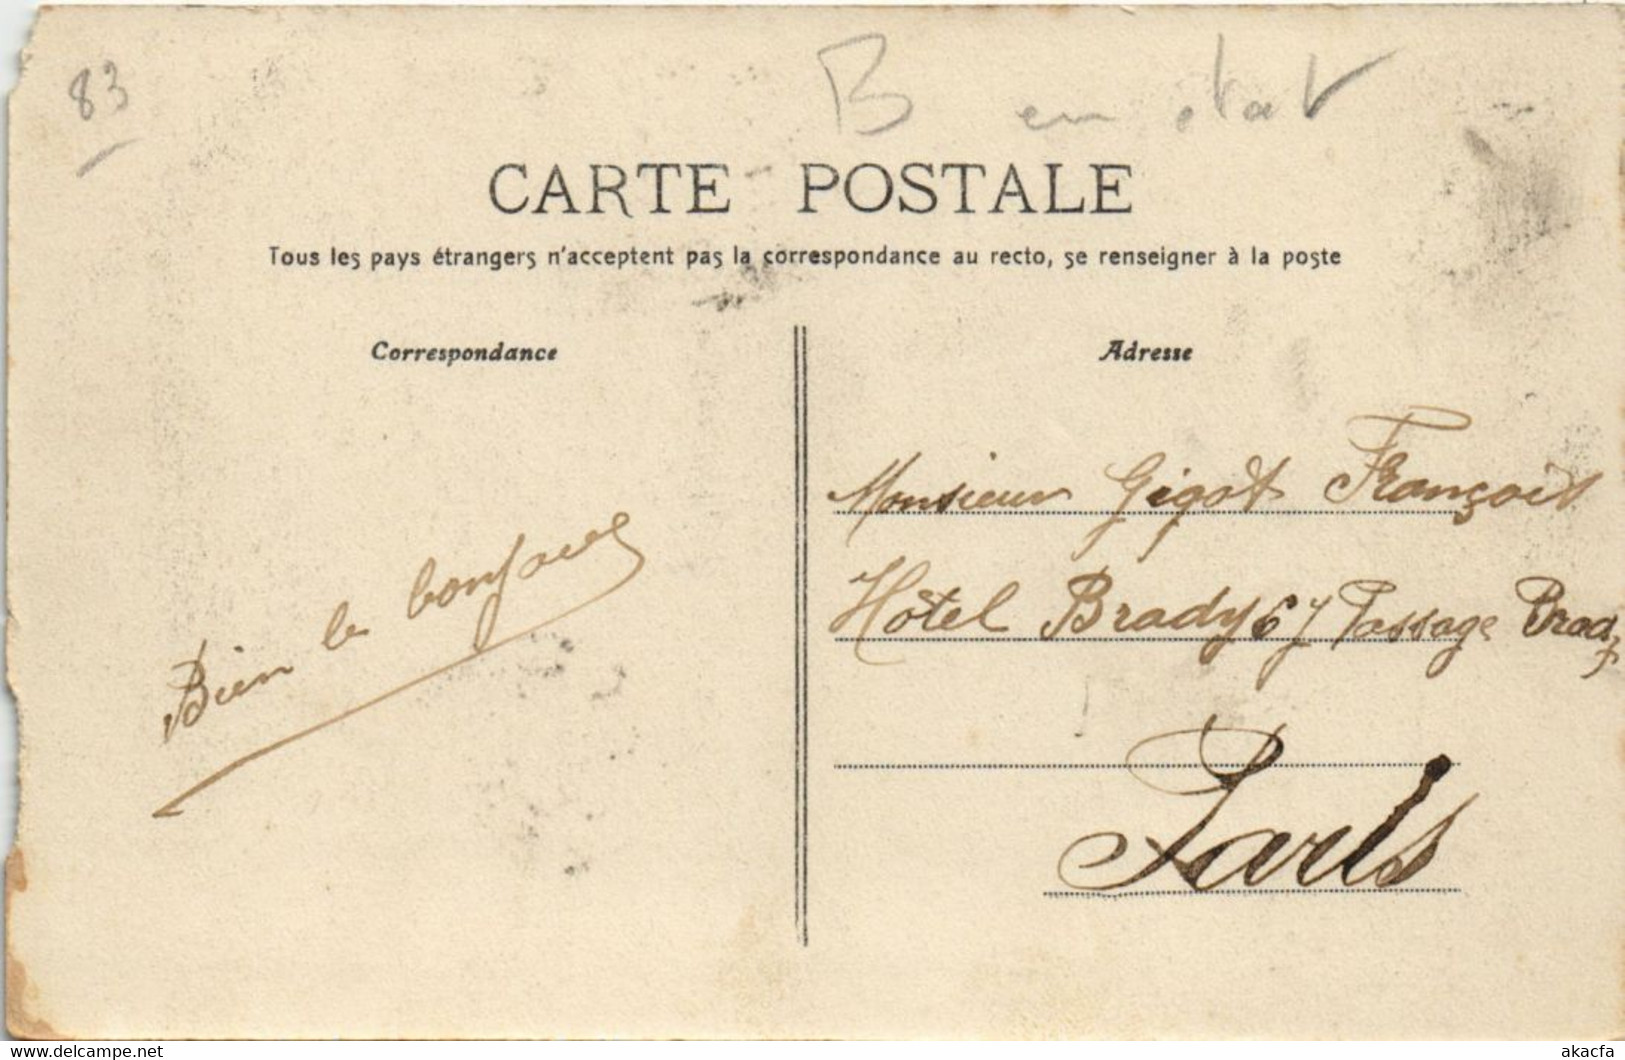 83
B en état
CARTE POSTALE
Tous les pays étrangers n'acceptent pas la correspondance au recto, se renseigner à la poste
Correspondance
Adresse
Bien le bonjour
Monsieur Gigot François
Hôtel Brady 67 Passage Brady
Paris
delcampe.net
akacfa